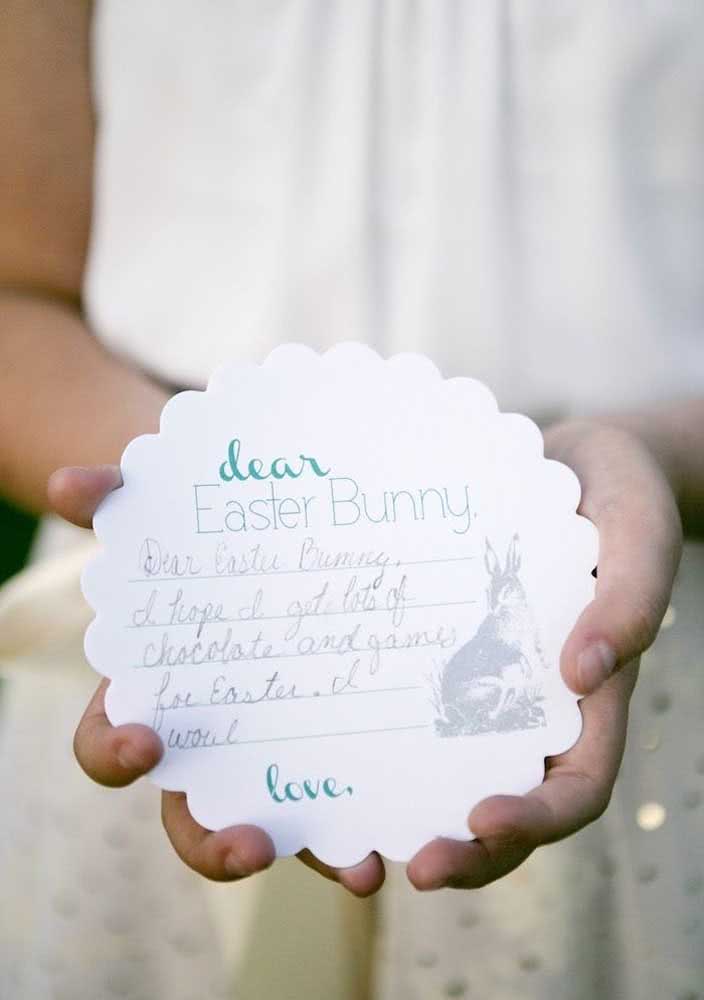 dear
Easter Bunny,
Dear Easter Bunny,
I hope I get lots of
chocolate and games
for Easter. I
woul
love,